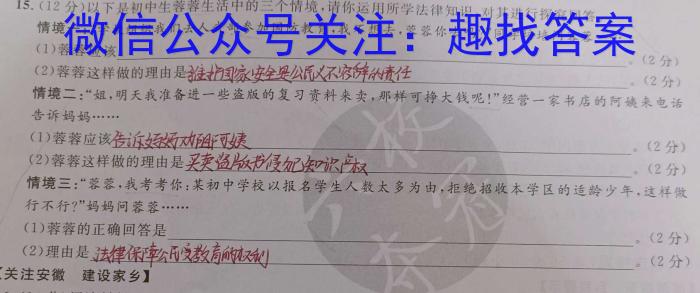 15.(12分)以下是初中生蓉蓉生活中的三个情境,请你运用所学法律知识,对其进行探究回答。
微信公众号关注:趣找答案
(1)蓉蓉应该 。(2分)
(2)蓉蓉这样做的理由是维护国家安全是公民义不容辞的责任 。(2分)
情境二:“姐,明天我准备进一些盗版的复习资料来卖,那样可挣大钱呢!”经营一家书店的阿姨来电话
告诉妈妈……
(1)蓉蓉应该告诉妈妈劝阻阿姨 。(2分)
(2)蓉蓉这样做的理由是买卖盗版书侵犯知识产权 。(2分)
情境三:“蓉蓉,我考考你:某初中学校以报名学生人数太多为由,拒绝招收本学区的适龄少年,这样做
行不行?”妈妈问蓉蓉……
(1)蓉蓉的正确回答是 。(2分)
(2)理由是法律保障公民受教育的权利 。(2分)
【关注安徽 建设家乡】